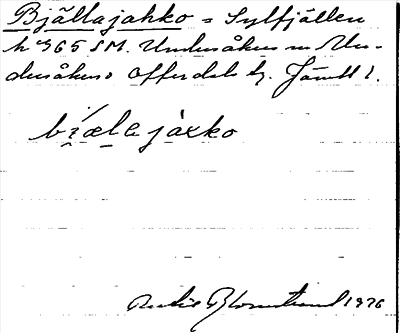 Bjällajahko = Sylfjällen
h 965 SM. Undersåkers o Un-
dersåkers o Offerdals tg. Jämtl l.
bi̯ælajaxko
Blomstrand 1926